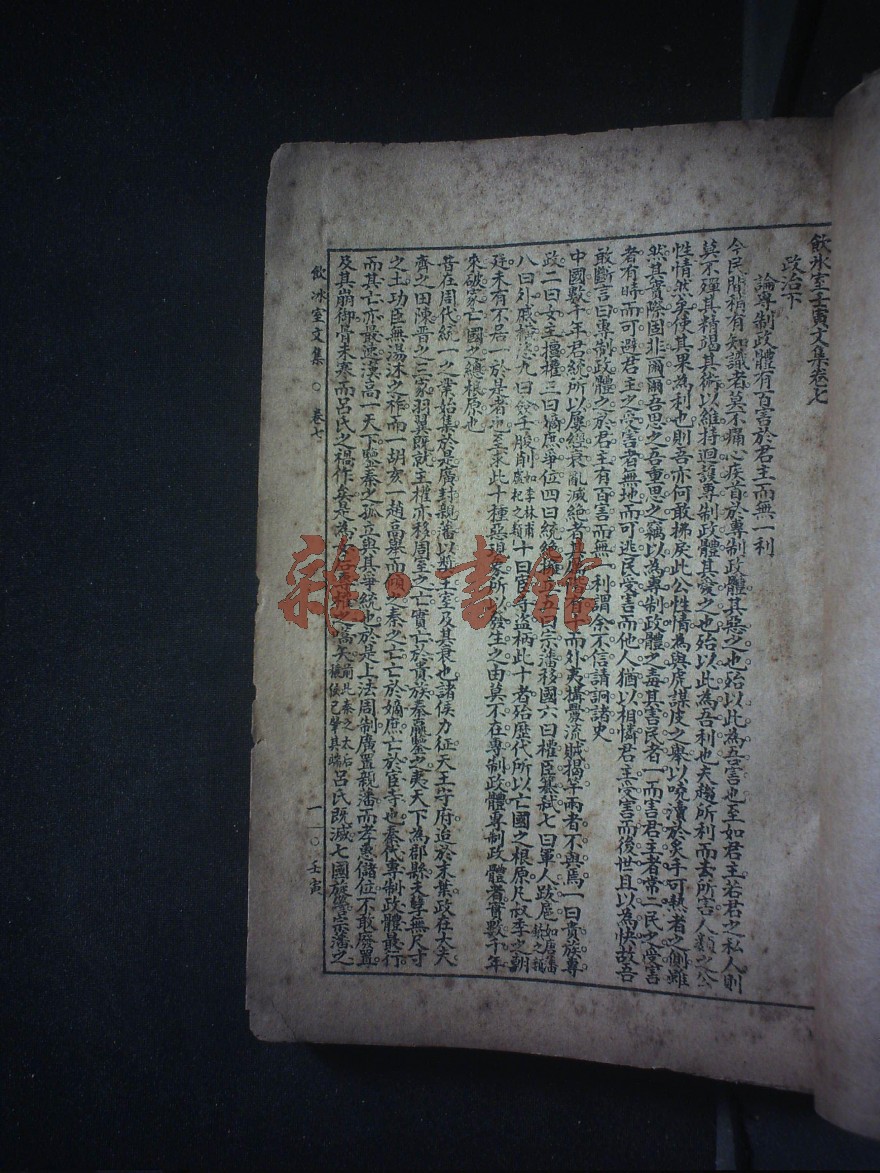 飲冰室壬寅文集卷七
政治下
論專制政體有百害於君主而無一利
今民間稍有知識者莫不痛心疾首於專制政體其惡之也殆以此為吾害也至如君主若君之私人則
莫不殫其精竭其術以維持迴護專制政體其愛之也殆以此為吾利也夫趨所利而去所害人類之公
性情然矣使其果為利也則吾亦何敢拂戾此公性情為與虎謀皮之舉以嘵瀆於炙手可熱者之側雖
然其實際固非爾爾吾思之吾重思之竊以為專制政體之毒其害民者一而害君主者常二民之受害
者有時而可避君主之受害者無地而可逃民受害而他人猶以相憐君主受害而後世且以為快故吾
敢斷言曰專制政體之於君主有百害而無一利謂余不信請詗諸史
中國數千年君統所以屢經衰亂滅絕者其厲階有十而外夷搆釁流賊揭竿兩者不與焉一曰貴族專
政二曰女主擅權三曰嫡庶爭位四曰統絕擁立五曰宗藩移國六曰權臣篡弒七曰軍人跋扈如唐藩鎮之類
八曰外戚橫恣九曰僉壬朘削如李林甫盧杞之類十曰宦寺盜柄此十者殆歷代所以亡國之根原凡叔季之朝
廷未有不居一於是者也至求此十種惡現象所以發生之由莫不在專制政體專制政體者實數千年
來破家亡國之總根原也
昔在周代統一之業始集於是廣封親藩以奬王室及其衰也諸侯力征天王守府迨於末葉政在大夫
齊之田陳晉之三家羽翼既就主權亦移周室之亡實亡於貴族秦嬴鑒之夷天下為郡縣夫孽無尺寸
之土功臣無湯沐之祚而一胡亥一趙高舉而傾之秦之亡亡於嫡庶亡於宦寺也秦代專制政體最行
而其亡亦最漢高一天下鑒秦之孤立與其爭統也於是上法周制廣置親藩而孝惠儲位不敢廢置
及其崩御骨未寒而呂氏之禍作矣是為女后專權之嚆矢前此秦之太后穰侯已肇其端呂氏既滅七國旋釁宗藩之
飲冰室文集 ○ 卷七 一 ○ 壬寅
雜·書館